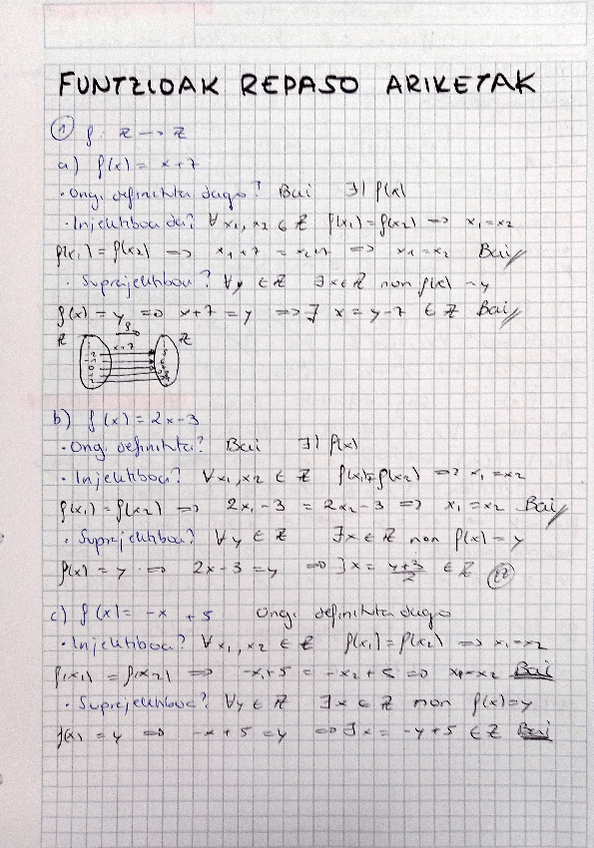 FUNTZIOAK REPASO ARIKETAK
① f: Z → Z
a) f(x) = x+7
· Ongi definituta dago? Bai ∃! f(x)
· Injektiboa da? ∀x₁, x₂ ∈ Z f(x₁) = f(x₂) => x₁ = x₂
f(x₁) = f(x₂) => x₁+7 = x₂+7 => x₁ = x₂ Bai//
· Suprajektiboa? ∀y ∈ Z ∃x ∈ Z non f(x) = y
f(x) = y => x+7 = y => ∃ x = y-7 ∈ Z Bai//
f
Z x+7 Z
b) f(x) = 2x-3
· Ongi definituta? Bai ∃! f(x)
· Injektiboa? ∀x₁, x₂ ∈ Z f(x₁) = f(x₂) => x₁ = x₂
f(x₁) = f(x₂) => 2x₁-3 = 2x₂-3 => x₁ = x₂ Bai//
· Suprajektiboa? ∀y ∈ Z ∃x ∈ Z non f(x) = y
f(x) = y => 2x-3 = y => ∃ x = (y+3)/2 ∈ Z
c) f(x) = -x + 5 Ongi definituta dago
· Injektiboa? ∀x₁, x₂ ∈ Z f(x₁) = f(x₂) => x₁ = x₂
f(x₁) = f(x₂) => -x₁+5 = -x₂+5 => x₁ = x₂ Bai
· Suprajektiboa? ∀y ∈ Z ∃x ∈ Z non f(x) = y
f(x) = y => -x+5 = y => ∃ x = -y+5 ∈ Z Bai